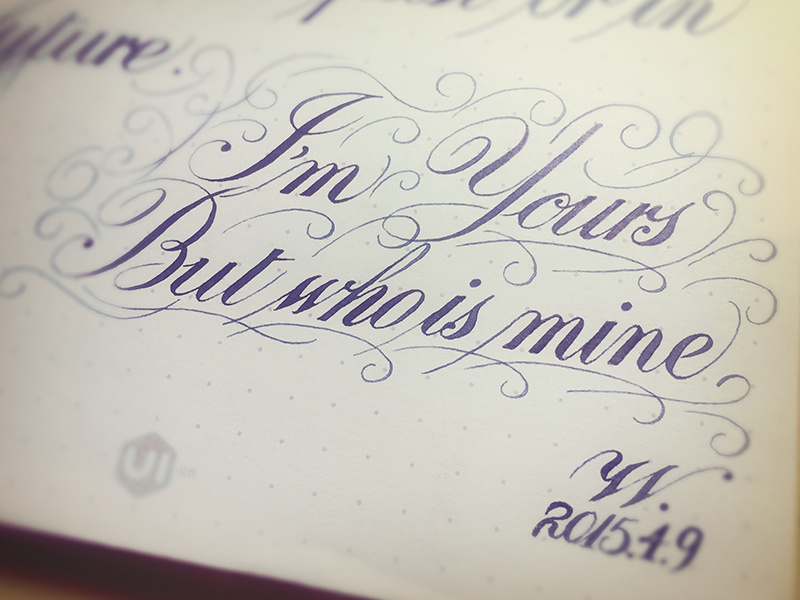 future.
I'm Yours
But who is mine
W.
2015.4.9
UI